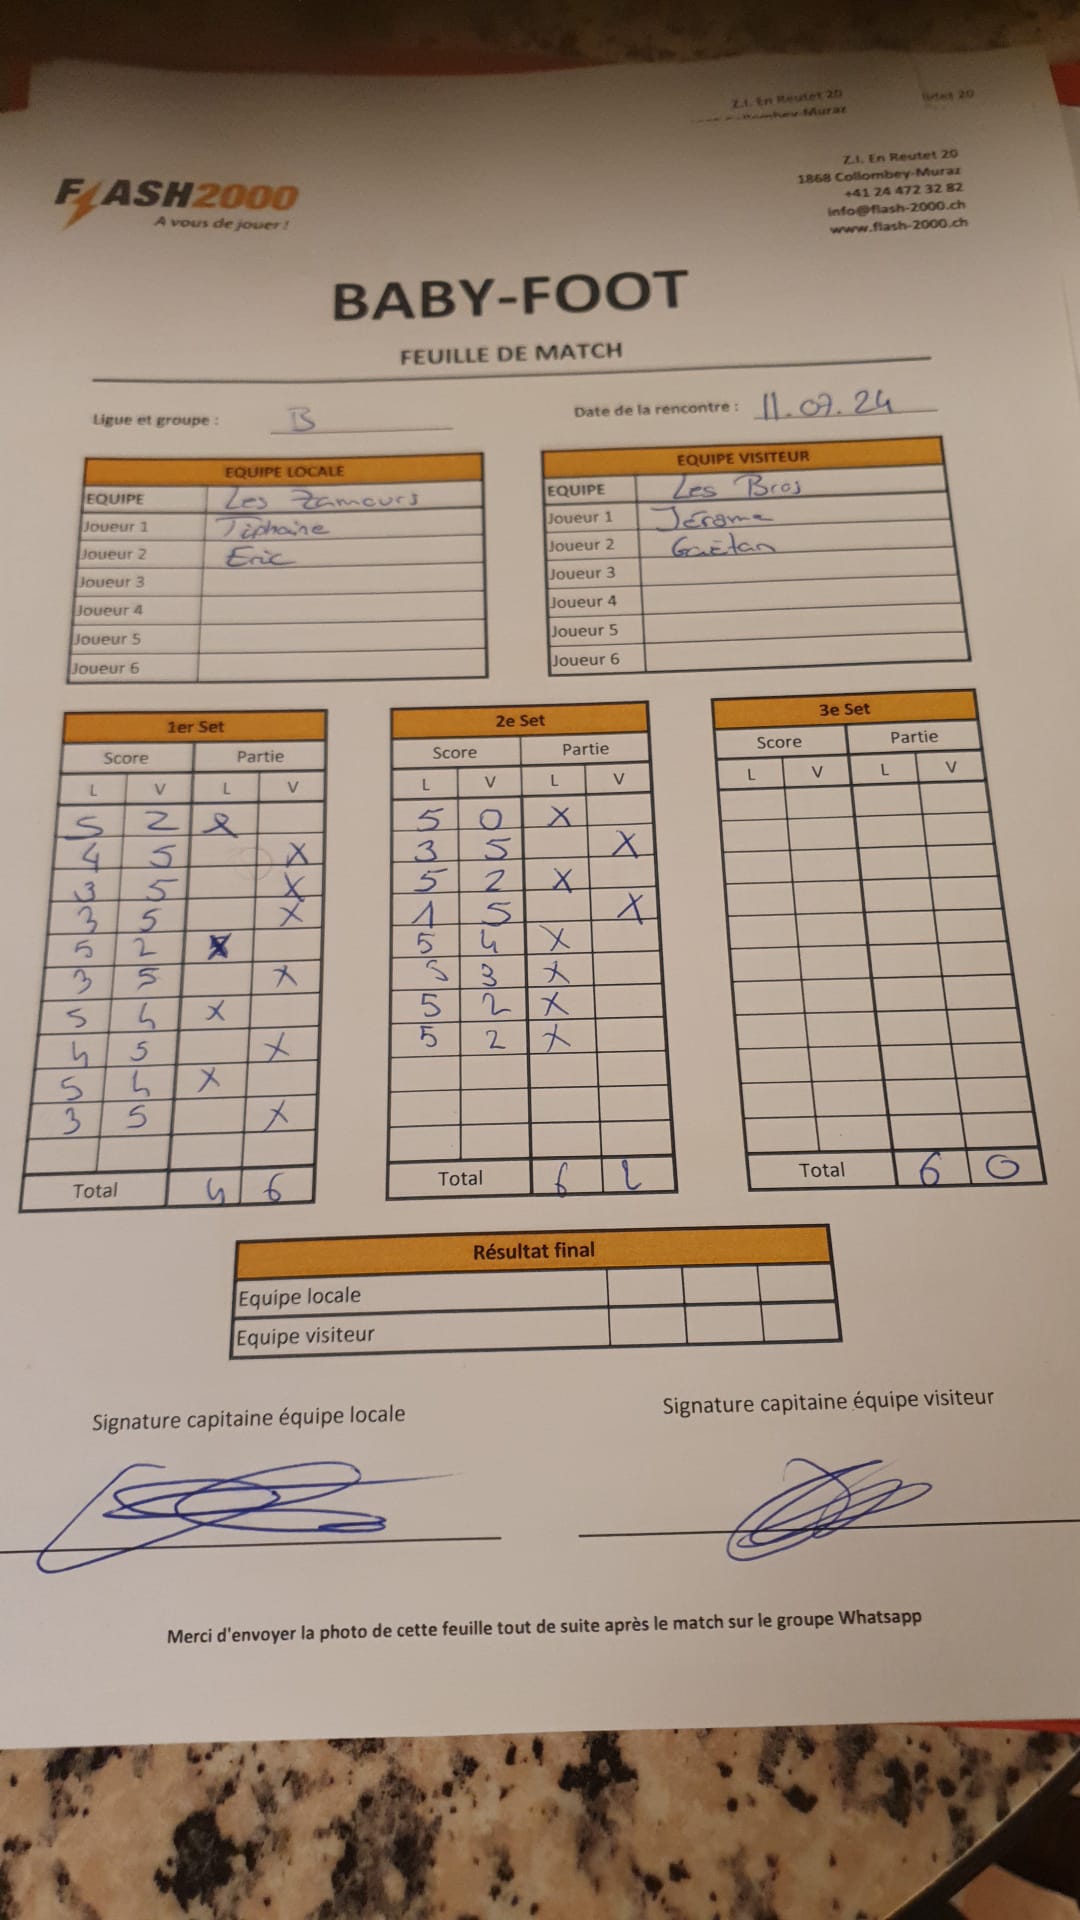 Z.I. En Reutet 20
FLASH2000
A vous de jouer !
Z.I. En Reutet 20
1868 Collombey-Muraz
+41 24 472 32 82
info@flash-2000.ch
www.flash-2000.ch
BABY-FOOT
FEUILLE DE MATCH
Ligue et groupe : B
Date de la rencontre : 11.07.24
EQUIPE LOCALE
EQUIPE Les Zamours
Joueur 1 Tiphaine
Joueur 2 Eric
Joueur 3
Joueur 4
Joueur 5
Joueur 6
EQUIPE VISITEUR
EQUIPE Les Bros
Joueur 1 Jérome
Joueur 2 Gaëtan
Joueur 3
Joueur 4
Joueur 5
Joueur 6
1er Set
Score Partie
L V L V
5 2 X
4 5 X
3 5 X
3 5 X
5 2 X
3 5 X
5 4 X
4 5 X
5 4 X
3 5 X
Total 4 6
2e Set
Score Partie
L V L V
5 0 X
3 5 X
5 2 X
1 5 X
5 4 X
5 3 X
5 2 X
5 2 X
Total 6 2
3e Set
Score Partie
L V L V
Total 6 0
Résultat final
Equipe locale
Equipe visiteur
Signature capitaine équipe locale
Signature capitaine équipe visiteur
Merci d'envoyer la photo de cette feuille tout de suite après le match sur le groupe Whatsapp